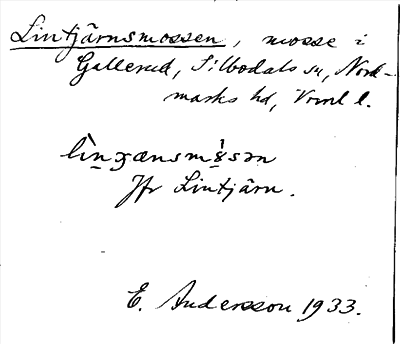 Lintjärnsmossen, mosse i
Gallerud, Silbodals sn, Nord-
marks hd, Vrml l.
Jfr Lintjärn.
E. Andersson 1933.